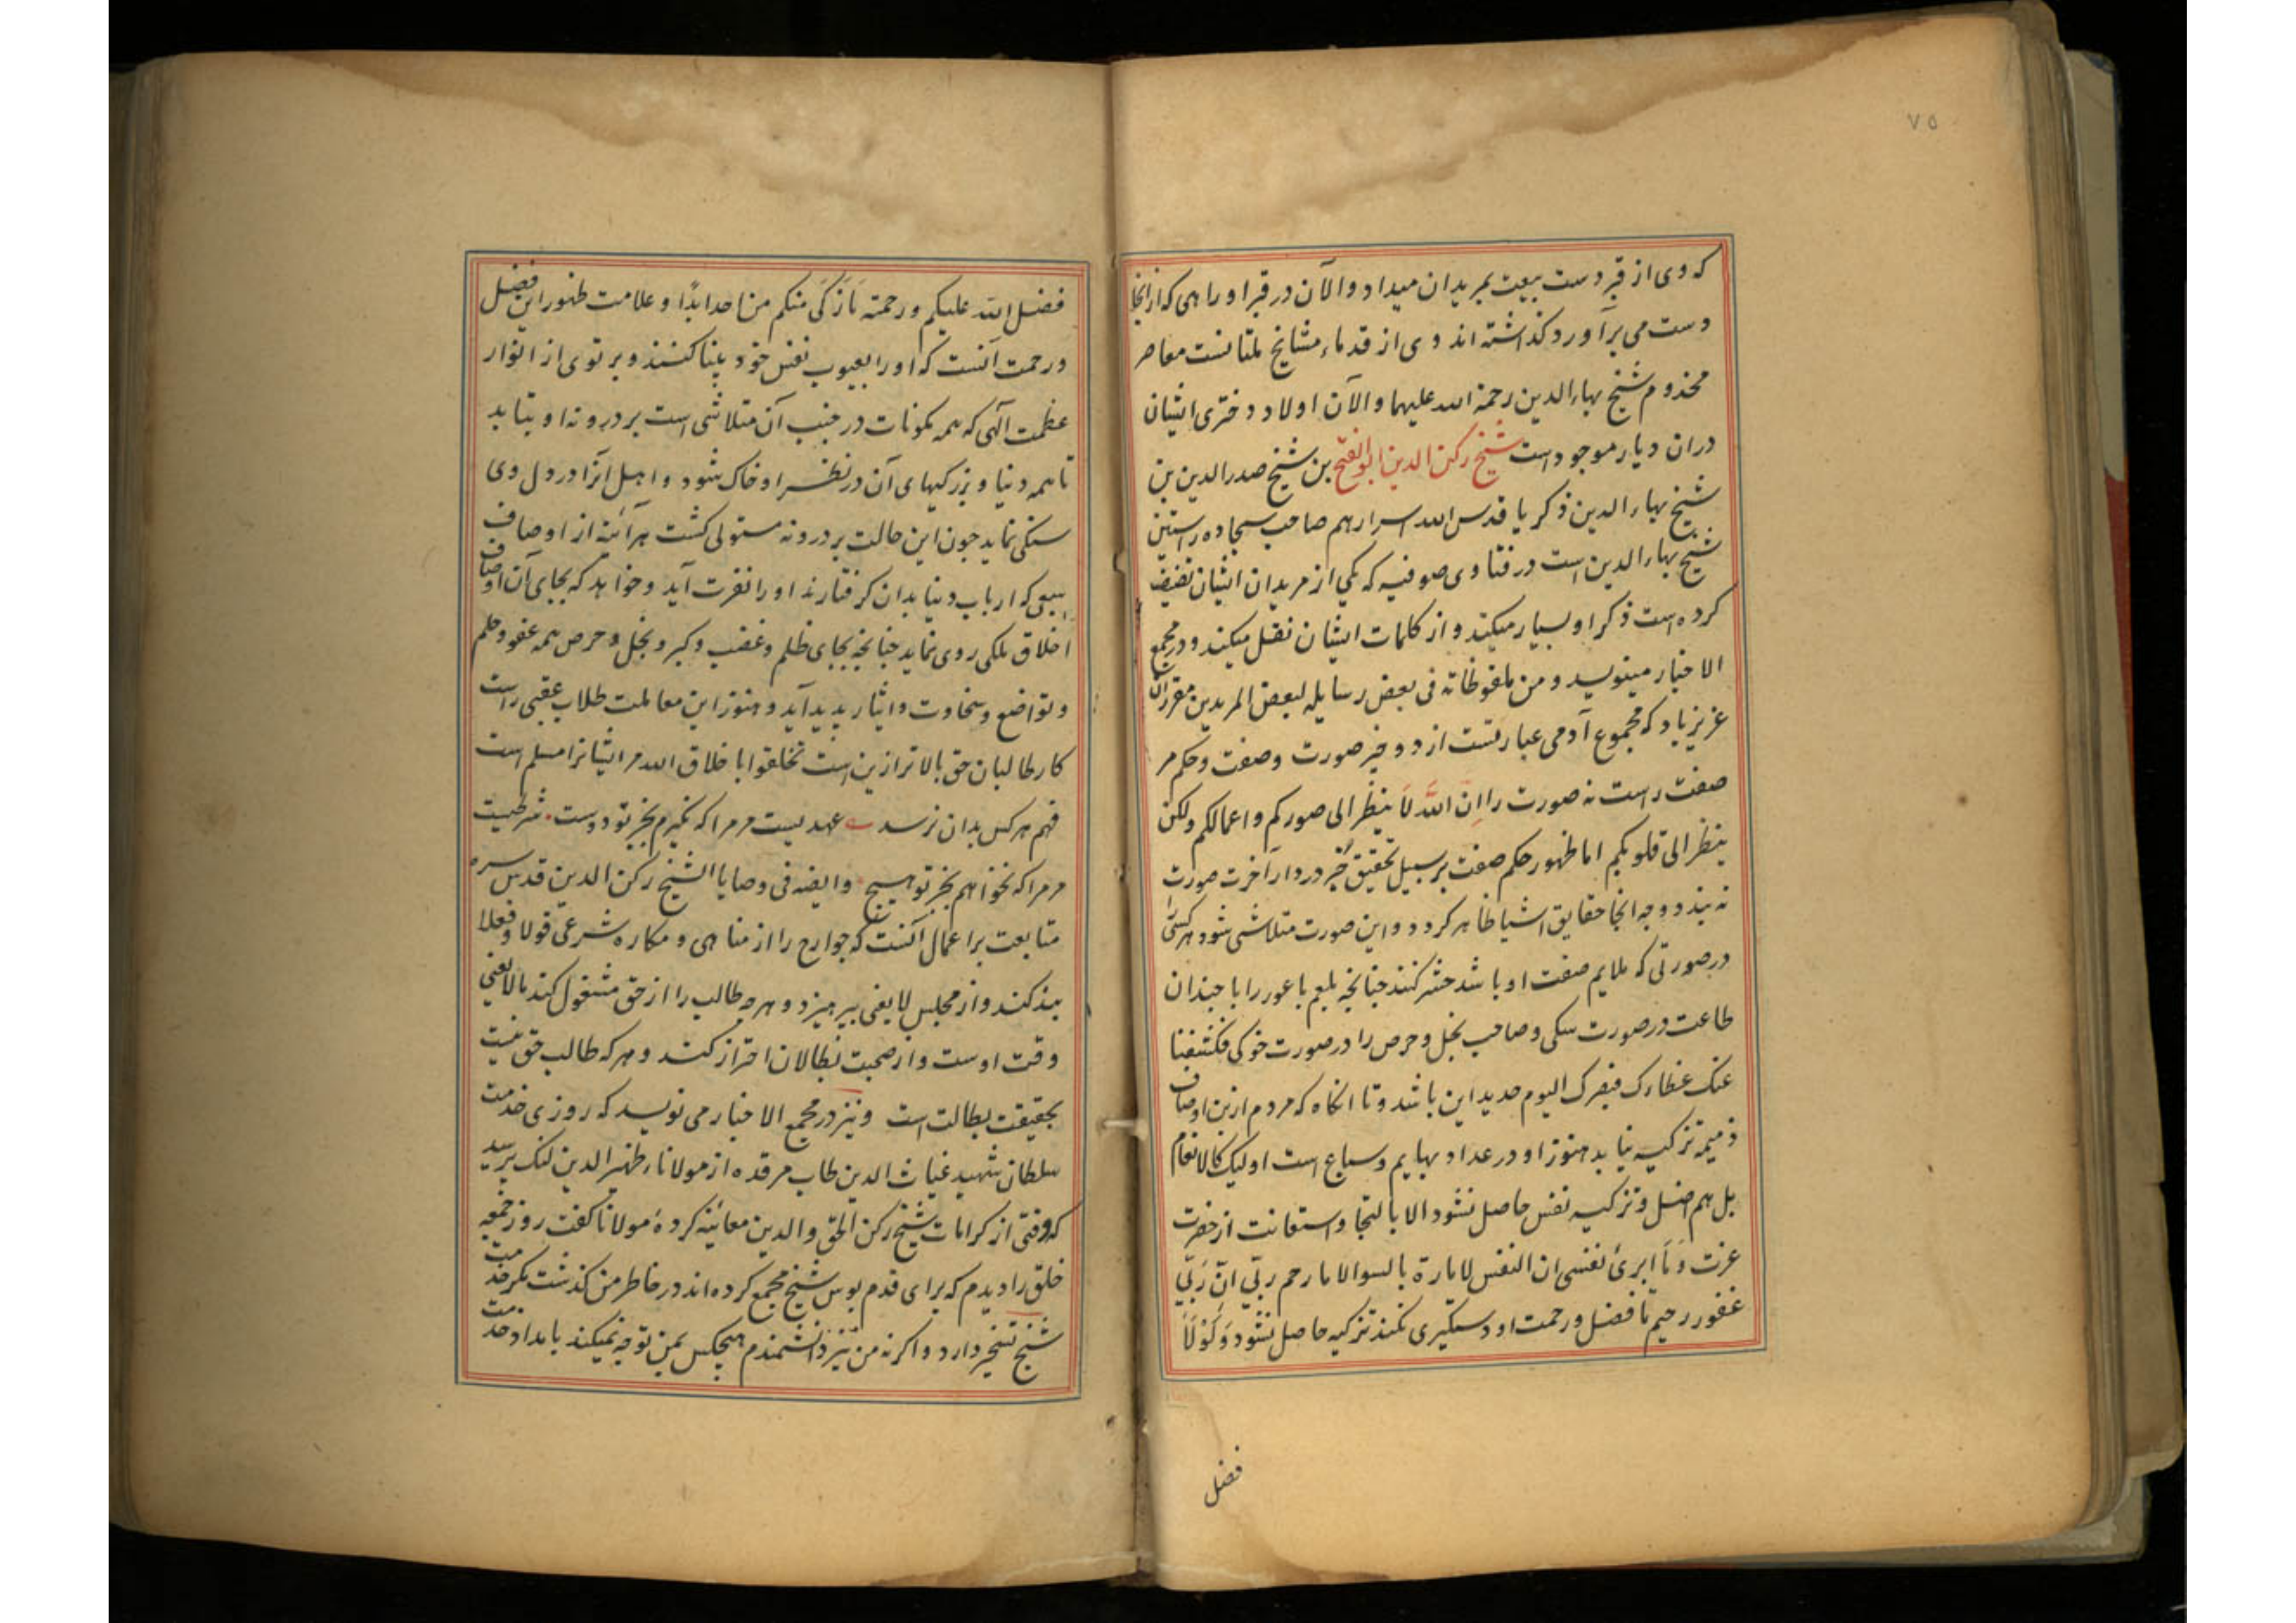 ۷۵
که وی از قبر دست بیعت بمریدان میداد و الآن در قبر او راهی که ازانجا
دست می برآورد گذاشته اند وی از قدماء مشایخ ملتانست معاصر
مخدوم شیخ بهاء الدین رحمة الله علیهما و الآن اولاد دختری ایشان
دران دیار موجود است شیخ رکن الدین ابو الفتح بن شیخ صدر الدین بن
شیخ بهاء الدین ذکریا قدس الله اسرارهم صاحب سجاده راستین
شیخ بهاء الدین است در فتاوی صوفیه که یکی از مریدان ایشان تصنیف
کرده است ذکر او بسیار میکند و از کلمات ایشان نقل میکند و در مجمع
الاخبار مینویسد و من ملفوظاته فی بعض رسایله لبعض المریدین مقرر آن
عزیز باد که مجموع آدمی عبارتست از دو چیز صورت و صفت و حکم مر
صفت راست نه صورت را ان الله لا ینظر الی صورکم و اعمالکم ولکن
ینظر الی قلوبکم اما ظهور حکم صفت بر سبیل تحقیق جز در دار آخرت صورت
نه بندد چه انجا حقایق اشیا ظاهر کردد و این صورت متلاشی شود هر کسی را
در صورتی که ملایم صفت او باشد حشر کنند چنانچه بلعم باعور را با چندان
طاعت در صورت سکی و صاحب بخل و حرص را در صورت خوکی فکشفنا
عنک غطاءک فبصرک الیوم حدید این باشد و تا انکاه که مردم ازین اوصاف
ذمیمه تزکیه نیابد هنوز او در عداد بهایم و سباع است اولیک کالانعام
بل هم اضل و تزکیه نفس حاصل نشود الا بالتجا و استعانت از حضرت
عزت وَمَا ابرئ نفسی ان النفس لامارة بالسوا الا ما رحم ربّی انّ رَبّی
غفور رحیم تا فضل و رحمت او دستکیری نکند تزکیه حاصل نشود وَلَوْلاَ
فضل
فضل الله علیکم و رحمته مَا زَکَی منکم من احد ابدًا و علامت ظهور این فضل
و رحمت آنست که او را بعیوب نفس خود بینا کنند و پرتوی از انوار
عظمت الهی که همه مکونات در جنب آن متلاشی است بر درونه او بتابد
تا همه دنیا و بزرکیهای آن در نظر او خاک شود و اهل آنرا در دل وی
سنکی نماید چون این حالت بر درونه مستولی کشت هر آئینه از اوصاف
سبعی که ارباب دنیا بدان کرفتارند او را نفرت آید و خواهد که بجای آن اوصاف
اخلاق ملکی روی نماید چنانچه بجای ظلم و غضب و کبر و بخل و حرص همه عفو و حلم
و تواضع و سخاوت و ایثار پدید آید و هنوز این معاملت طلاب عقبی راست
کار طالبان حق بالاتر ازین است تخلقوا باخلاق الله مر ایشانرا مسلم است
فهم هر کس بدان نرسد عهدیست مر مرا که نکیرم بجز تو دوست شرطیست
مر مرا که نخواهم بجز تو هیچ وایضه فی وصایا الشیخ رکن الدین قدس سره
متابعت بر اعمال آنست که جوارح را از مناهی و مکاره شرعی قولا و فعلا
بند کند و از مجلس لایعنی بپرهیزد و هر چه طالب را از حق مشغول کند مالایعنی
وقت اوست و از صحبت بطالان احتراز کند و هر که طالب حق نیست
بحقیقت بطالت است و نیز در مجمع الاخبار می نویسد که روزی خدمت
سلطان شهید غیاث الدین طاب مرقده از مولاناء ظهیر الدین لنک پرسید
که وقتی از کرامات شیخ رکن الحق و الدین معاینه کردهٔ مولانا کفت روز جمعه
خلق را دیدم که برای قدم بوس شیخ مجمع کرده اند در خاطر من کذشت مکر خدمت
شیخ تسخیر دارد و اکر نه من نیز دانشمندم هیچکس بمن توجه نمیکند بامداد خدمت